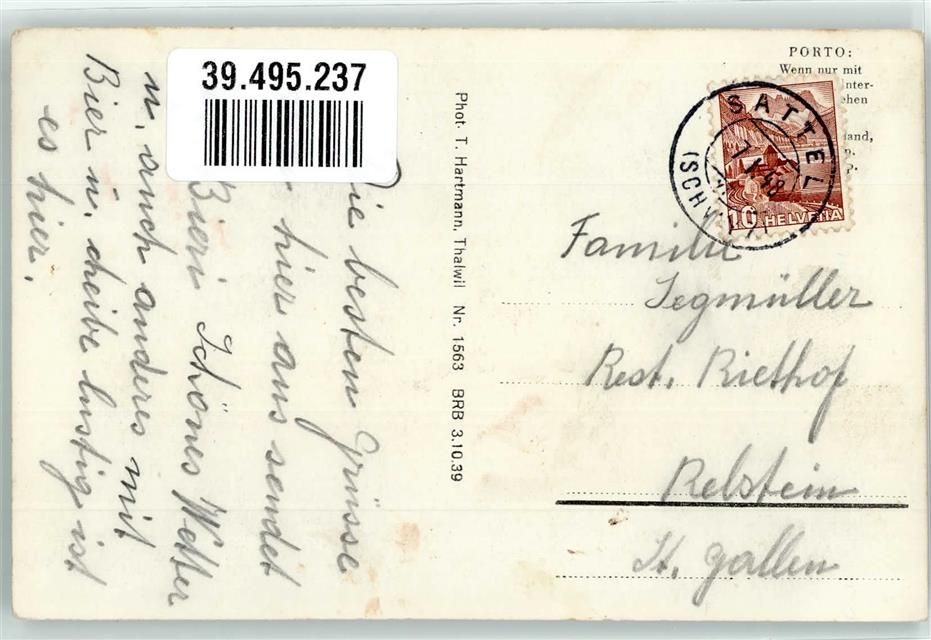 39.495.237
Die besten Grüsse
hier aus sendet
Bieri Schönes Wetter
n. auch anderes mit
Bier n. cheibe lustig ist
es hier.
Phot. T. Hartmann, Thalwil Nr. 1563 BRB 3.10.39
PORTO:
Wenn nur mit
SATTEL
(SCHWYZ)
10 HELVETIA
Familie
Segmüller
Rest. Riethof
Rebstein
St. Gallen